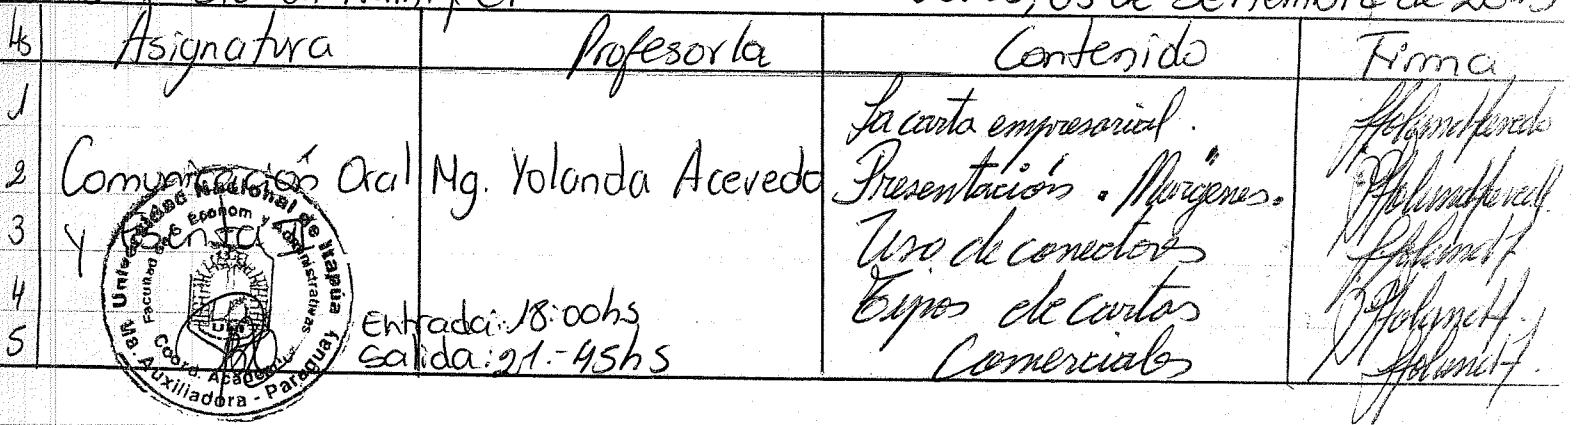 de Setiembre de
Hs Asignatura Profesor/a Contenido Firma
1 La carta empresarial.
2 Comunicación Oral Mg. Yolanda Acevedo Presentación. Márgenes.
3 y Escrita II Uso de conectores
4 Tipos de cartas
Entrada: 18:00hs
5 Salida: 21:45hs Comerciales
Universidad Nacional de Itapúa
Ma. Auxiliadora - Paraguay